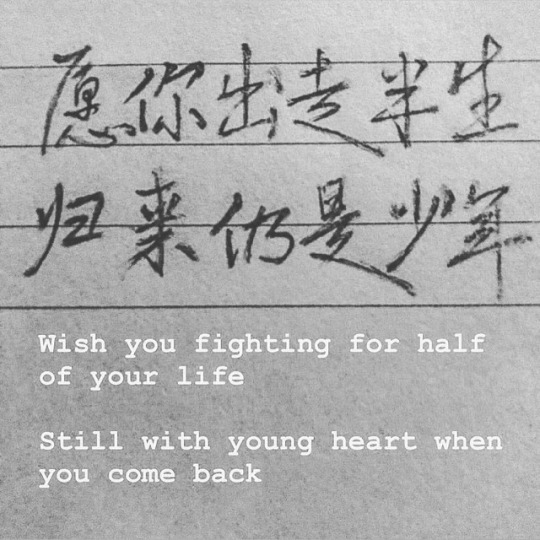 愿你出走半生
归来仍是少年
Wish you fighting for half
of your life
Still with young heart when
you come back